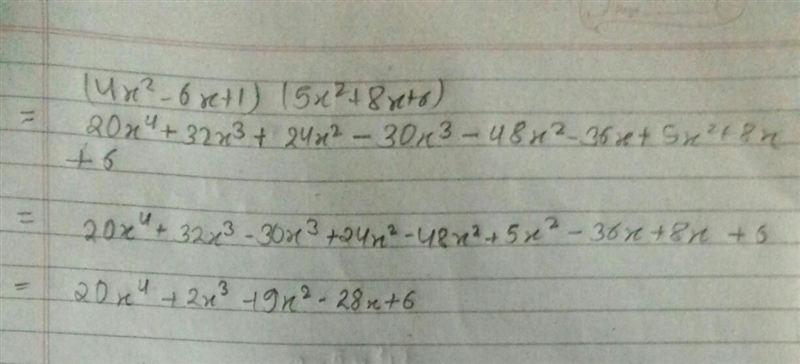 (4x² - 6x + 1) (5x² + 8x + 6)
= 20x⁴ + 32x³ + 24x² - 30x³ - 48x² - 36x + 5x² + 8x
+ 6
= 20x⁴ + 32x³ - 30x³ + 24x² - 48x² + 5x² - 36x + 8x + 6
= 20x⁴ + 2x³ + 9x² - 28x + 6